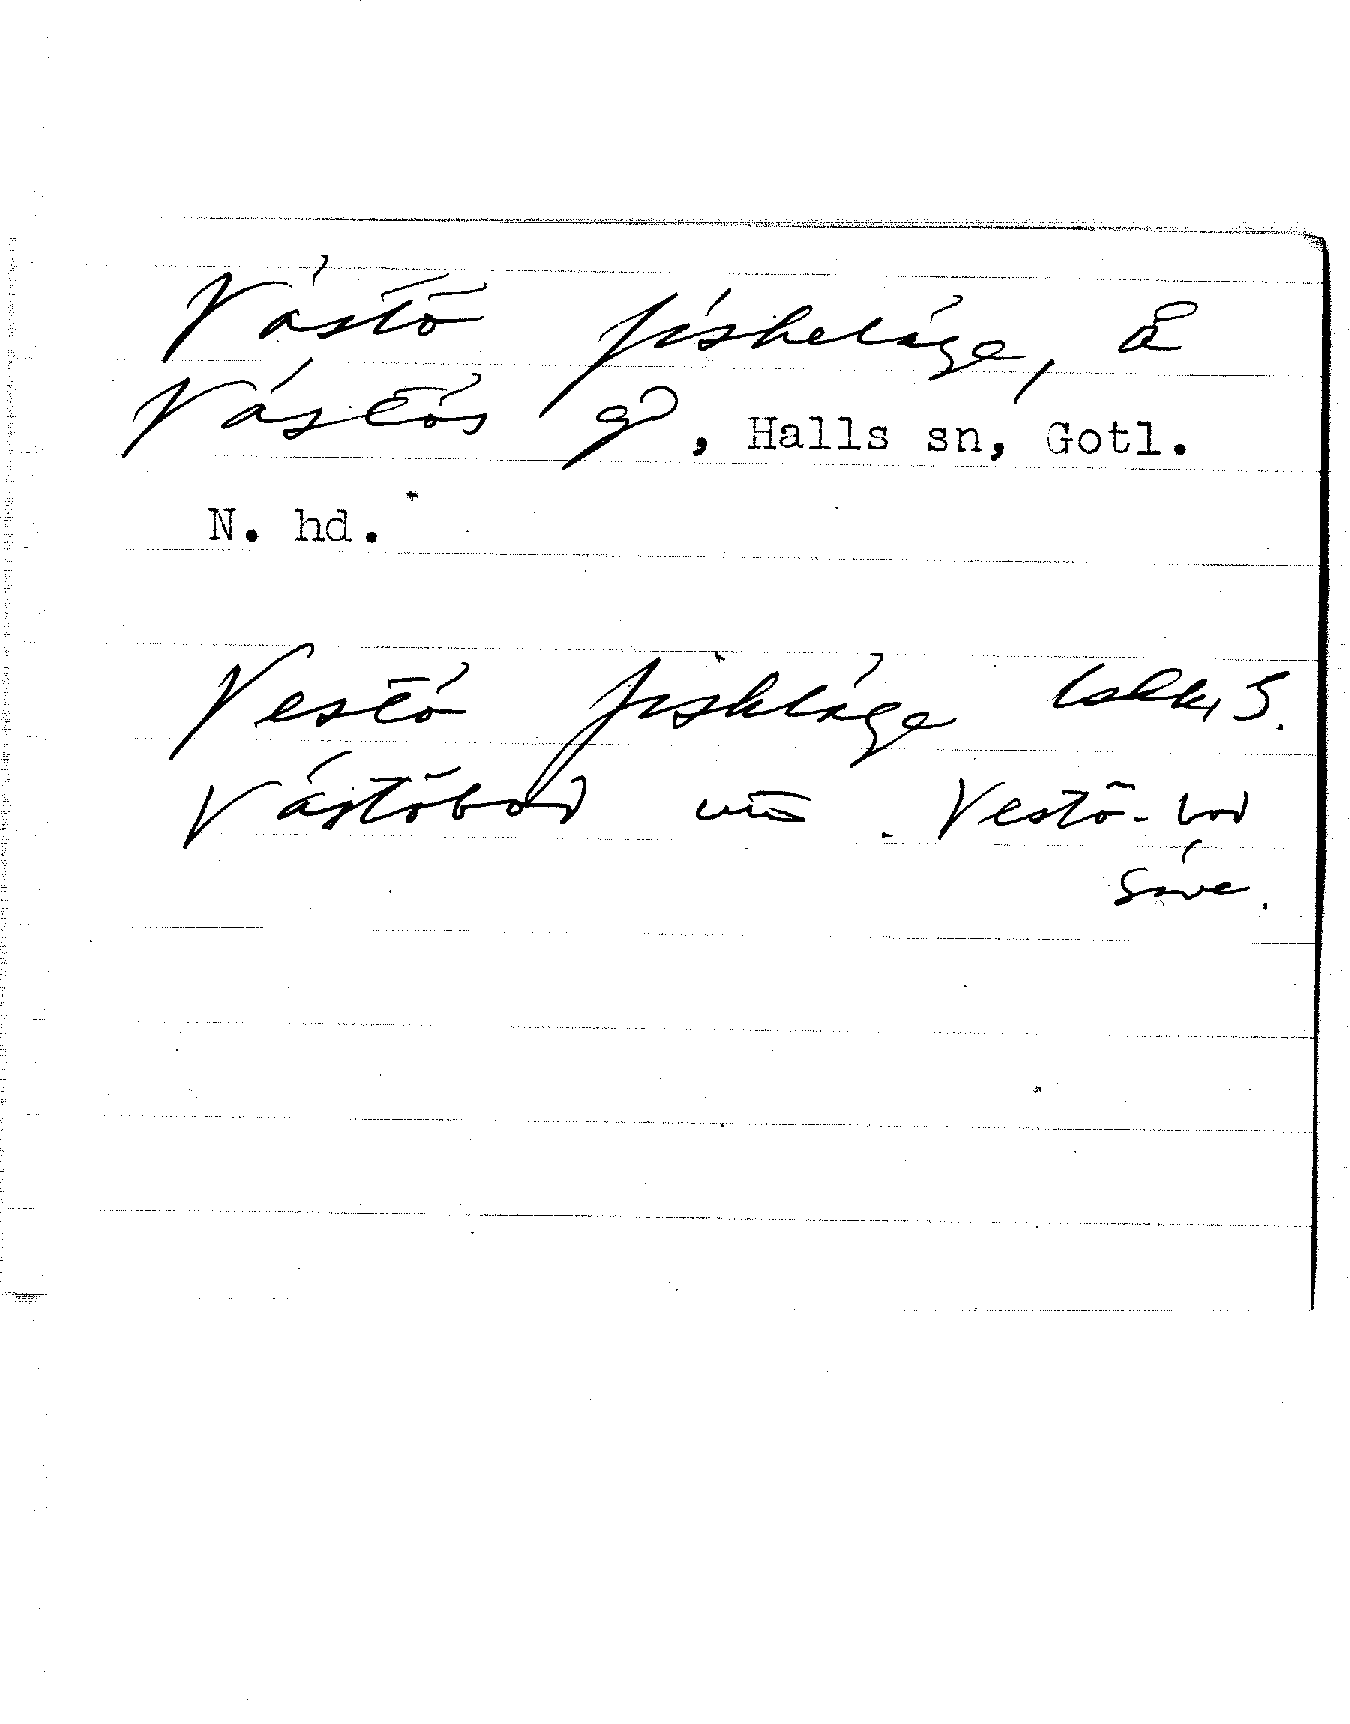 Västö fiskeläge, å
Västös gd, Halls sn, Gotl.
N. hd.
Vestö fiskläge S.
Västöbod utm. Vestö-bod
Säve.